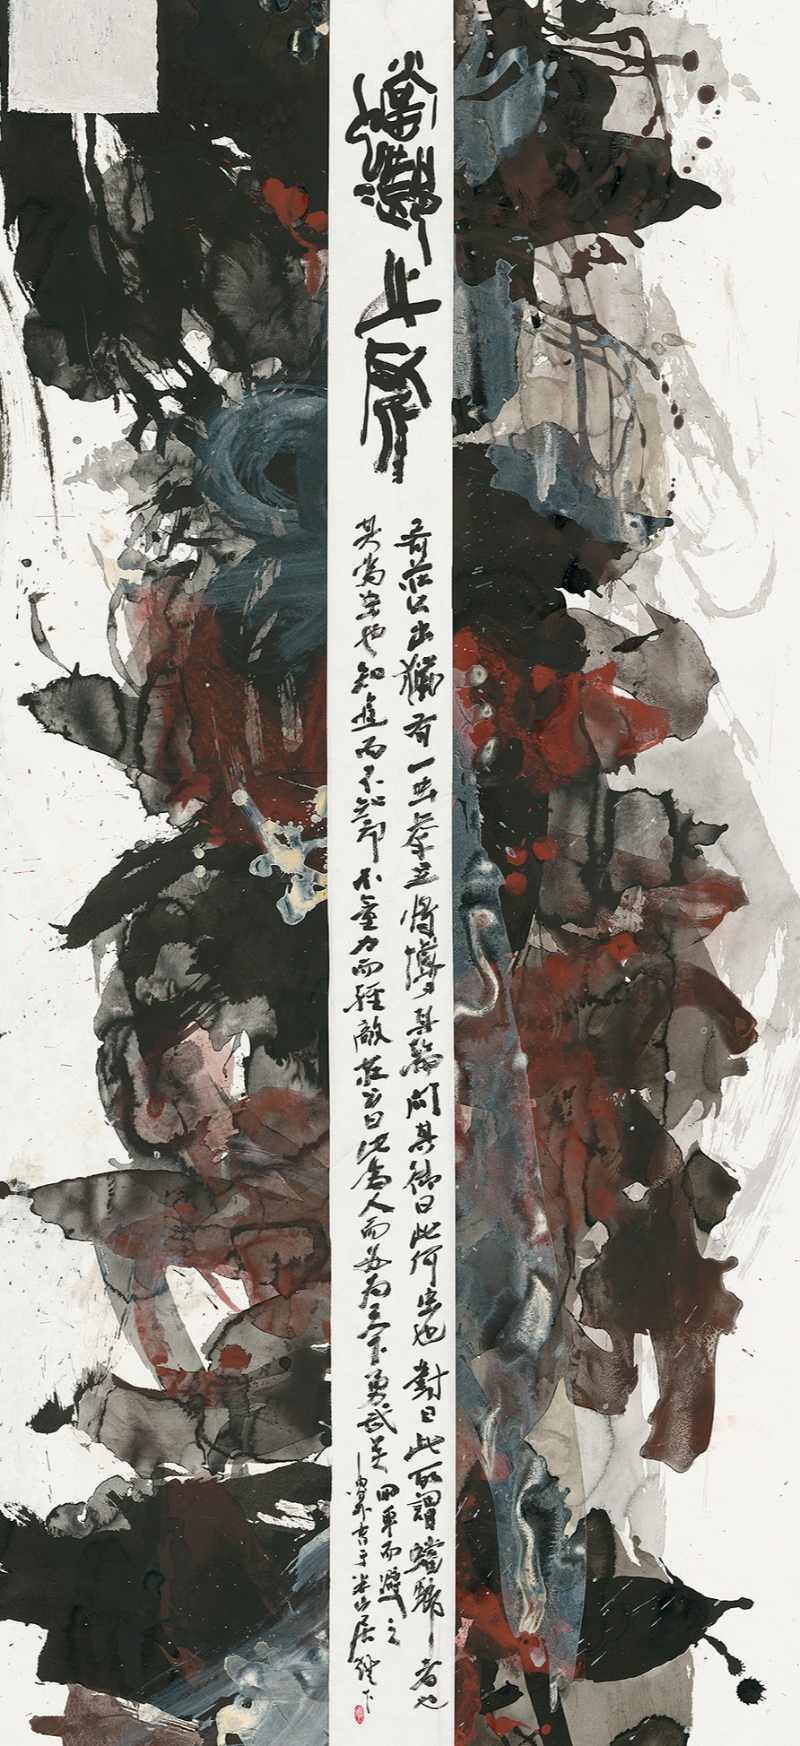 螳螂之臂
齊莊公出獵有一虫舉足將搏其輪問其御曰此何虫也對曰此所謂螳螂者也
其為虫也知進而不知却不量力而輕敵莊公曰此為人而必為天下勇武矣
回車而避之
居燈下